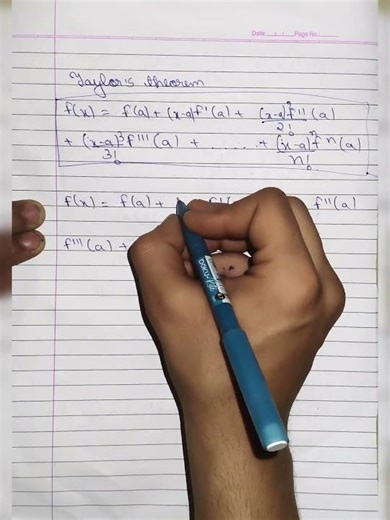 Date / / Page No.
Taylor's theorem
f(x) = f(a) + (x-a)f'(a) + (x-a)²/2! f''(a)
+ (x-a)³/3! f'''(a) + ...... + (x-a)ⁿ/n! fⁿ(a)
f(x) = f(a) + f'( f''(a)
f'''(a) +